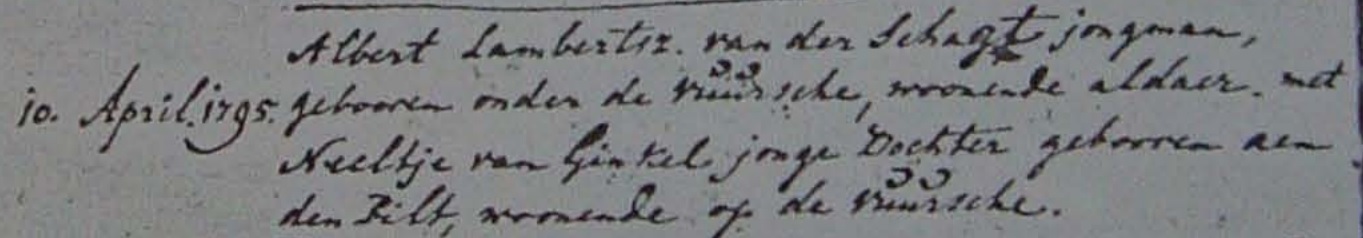 Albert Lambertsz. van der Schagt jongman,
10. April. 1795. gebooren onder de vuursche, woonende aldaer. met
Neeltje van Ginkel jonge Dochter gebooren aen
den Bilt, woonende op de vuursche.